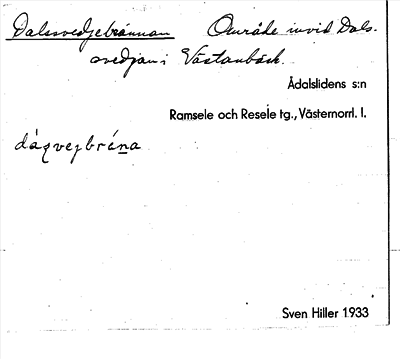 Dalssvedjebrännan Område invid Dals-
svedjan i Västanbäck.
Ådalslidens s:n
Ramsele och Resele tg., Västernorrl. l.
Sven Hiller 1933